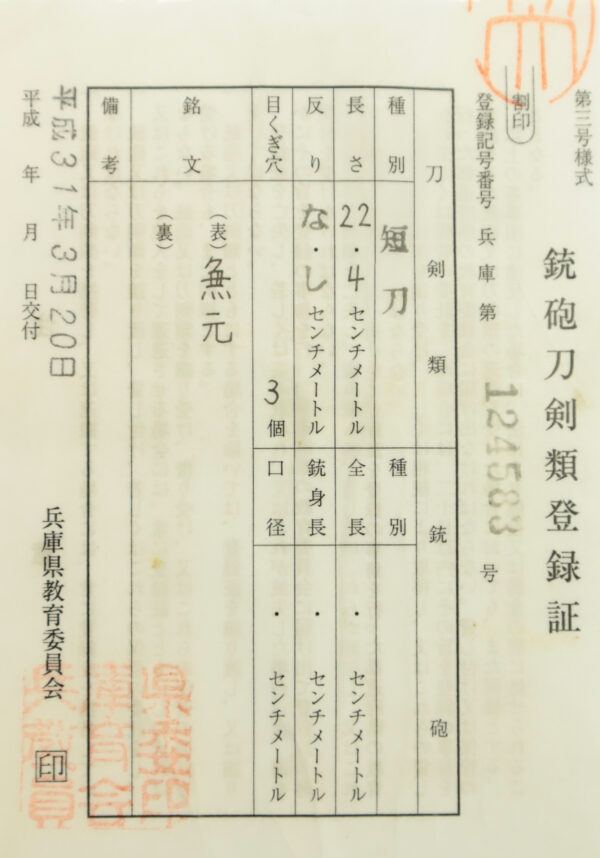 第三号様式
銃砲刀剣類登録証
割印
登録記号番号 兵庫第 124583 号
刀剣類
銃砲
種別 短刀
種別
長さ 22.4 センチメートル
全長 ・ センチメートル
反り なし センチメートル
銃身長 ・ センチメートル
目くぎ穴 3 個
口径 ・ センチメートル
銘文
(表) 無元
(裏)
備考
平成31年3月20日
平成 年 月 日交付
兵庫県教育委員会 印